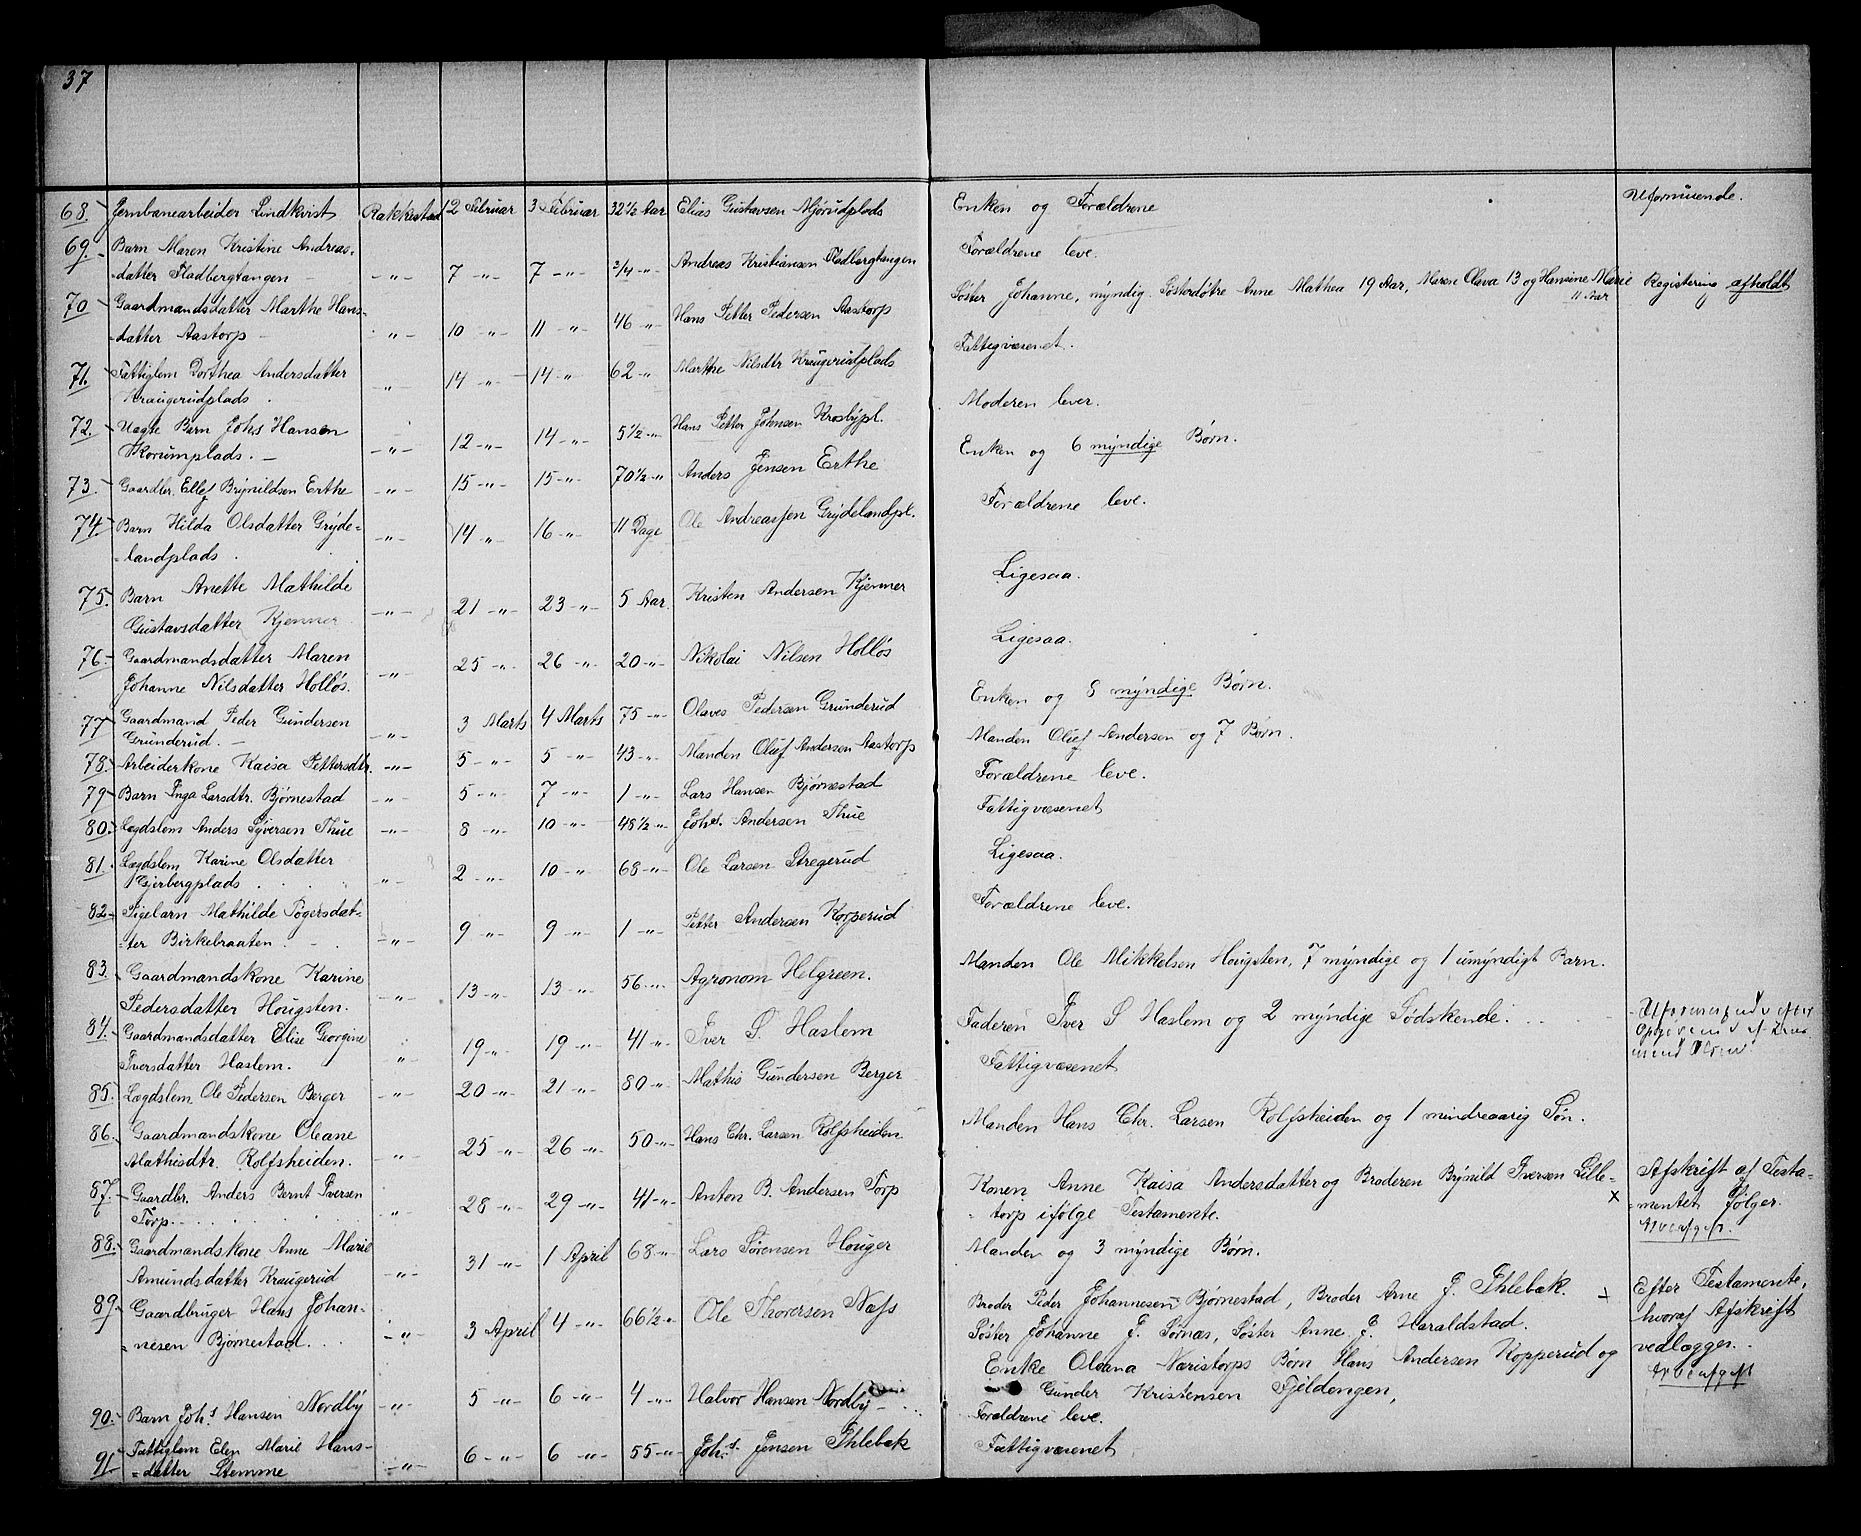 37
68. Jernbanearbeider Lindkvist Rakkestad 2 Februar 3 Februar 32 1/2 Aar Elias Gustavsen Mjørudplads Enken og Forældrene Uformuende.
69. Barn Maren Kristine Andreas-
-datter Fladbergtangen — -"- 7 -"- 7 -"- 3/4 -"- Andreas Kristiansen Fladbergtangen Forældrene leve.
70 Gaardmandsdatter Marthe Hans-
-datter Aastorp — -"- 10 -"- 11 -"- 46 -"- Hans Petter Pedersen Aastorp Søster Johanne, myndig. Søsterdøtre Anne Mathea 19 Aar, Maren Olava 13 og Hansine Marie 11 Aar Registering afholdt
71. Fattiglem Dorthea Andersdatter
Kraugerudplads. -"- 14 -"- 14 -"- 62 -"- Marthe Nilsdtr Kraugerudplads Fattigvæsenet.
72. Uægte Barn Johs Hansen
Skorumplads. — -"- 12 -"- 14 -"- 5 1/2 -"- Hans Petter Johnsen Krosbypl. Moderen lever.
73. Gaardbr. Ellef Brynildsen Erthe -"- 15 -"- 15 -"- 70 1/2 -"- Anders Jensen Erthe Enken og 6 myndige Børn.
74. Barn Hilda Olsdatter Gryde-
-landplads. -"- 14 -"- 16 -"- 11 Dage Ole Andreassen Grydelandpl. Forældrene leve.
75. Barn Anette Mathilde
Gustavsdatter Kjenner -"- 21 -"- 23 -"- 5 Aar. Kristen Andersen Kjenner Ligesaa.
76. Gaardmandsdatter Maren
Johanne Nilsdatter Holløs. -"- 25 -"- 26 -"- 20 -"- Nikolai Nilsen Holløs Ligesaa.
77 Gaardmand Peder Gundersen
Grunderud. — -"- 3 Marts 4 Marts 75 -"- Olaves Pedersen Grunderud Enken og 8 myndige Børn.
78. Arbeiderkone Kaisa Pettersdtr. -"- 5 -"- 5 -"- 43 -"- Manden Oluf Andersen Aastorp Manden Oluf Andersen og 7 Børn.
79 Barn Inga Larsdtr. Bjørnestad -"- 5 -"- 7 -"- 1 -"- Lars Hansen Bjørnestad Forældrene leve.
80. Lægdslem Anders Syversen Thue -"- 8 -"- 10 -"- 48 1/2 -"- Johs. Andersen Thue Fattigvæsenet
81. Lægdslem Karine Olsdatter
Gjerbergplads -"- 2 -"- 10 -"- 68 -"- Ole Larsen Stregerud Ligesaa.
82 Pigebarn Mathilde Tøgersdat-
-ter Birkebraaten. -"- 9 -"- 9 -"- 1 -"- Petter Andersen Korperud Forældrene leve.
83. Gaardmandskone Karine
Pedersdatter Hougsten. -"- 13 -"- 13 -"- 56 -"- Agronom Helgreen. Manden Ole Mikkelsen Hougsten, 7 myndige og 1 umyndigt Barn.
84. Gaardmandsdatter Elise Georgine
Iversdatter Haslem. -"- 19 -"- 19 -"- 41 -"- Iver S. Haslem Faderen Iver S Haslem og 2 myndige Sødskende.
85. Lægdslem Ole Pedersen Berger -"- 20 -"- 21 -"- 80 -"- Mathis Gundersen Berger Fattigvæsenet
86. Gaardmandskone Oleane
Mathisdtr. Rolfsheiden. -"- 25 -"- 26 -"- 50 -"- Hans Chr. Larsen Rolfsheiden Manden Hans Chr. Larsen Rolfsheiden og 1 mindreaarig Søn.
87. Gaardbr. Anders Bernt Iversen
Torp. -"- 28 -"- 29 -"- 41 -"- Anton B. Andersen Torp Konen Anne Kaisa Andersdatter og Broderen Brynild Iversen Lille- x Afskrift af Testa-
-torp ifølge Testamente. -mentet følger.
Arveafgift.
88. Gaardmandskone Anne Marie
Amundsdatter Kraugerud -"- 31 -"- 1 April 68 -"- Lars Sørensen Houger Manden og 3 myndige Børn.
89. Gaardbruger Hans Johan-
-nesen Bjørnestad. -"- 3 April 4 -"- 66 1/2 -"- Ole Thoresen Næss Broder Peder Johannesen Bjørnestad, Broder Arne J. Ihlebæk. + Efter Testamente,
Søster Johanne J. Sørnæs, Søster Anne J. Haraldstad. hvoraf Afskrift
Enke Oleana Næristorps Børn Hans Andersen Kopperud og vedlægges.
Gunder Kristensen Fjeldengen, Arveafgift
90. Barn Johs. Hansen Nordby -"- 5 -"- 6 -"- 4 -"- Halvor Hansen Nordby Forældrene leve.
91 Fattiglem Elen Marie Hans-
-datter Stemme -"- 6 -"- 6 -"- 55 -"- Johs. Jensen Ihlebæk Fattigvæsenet